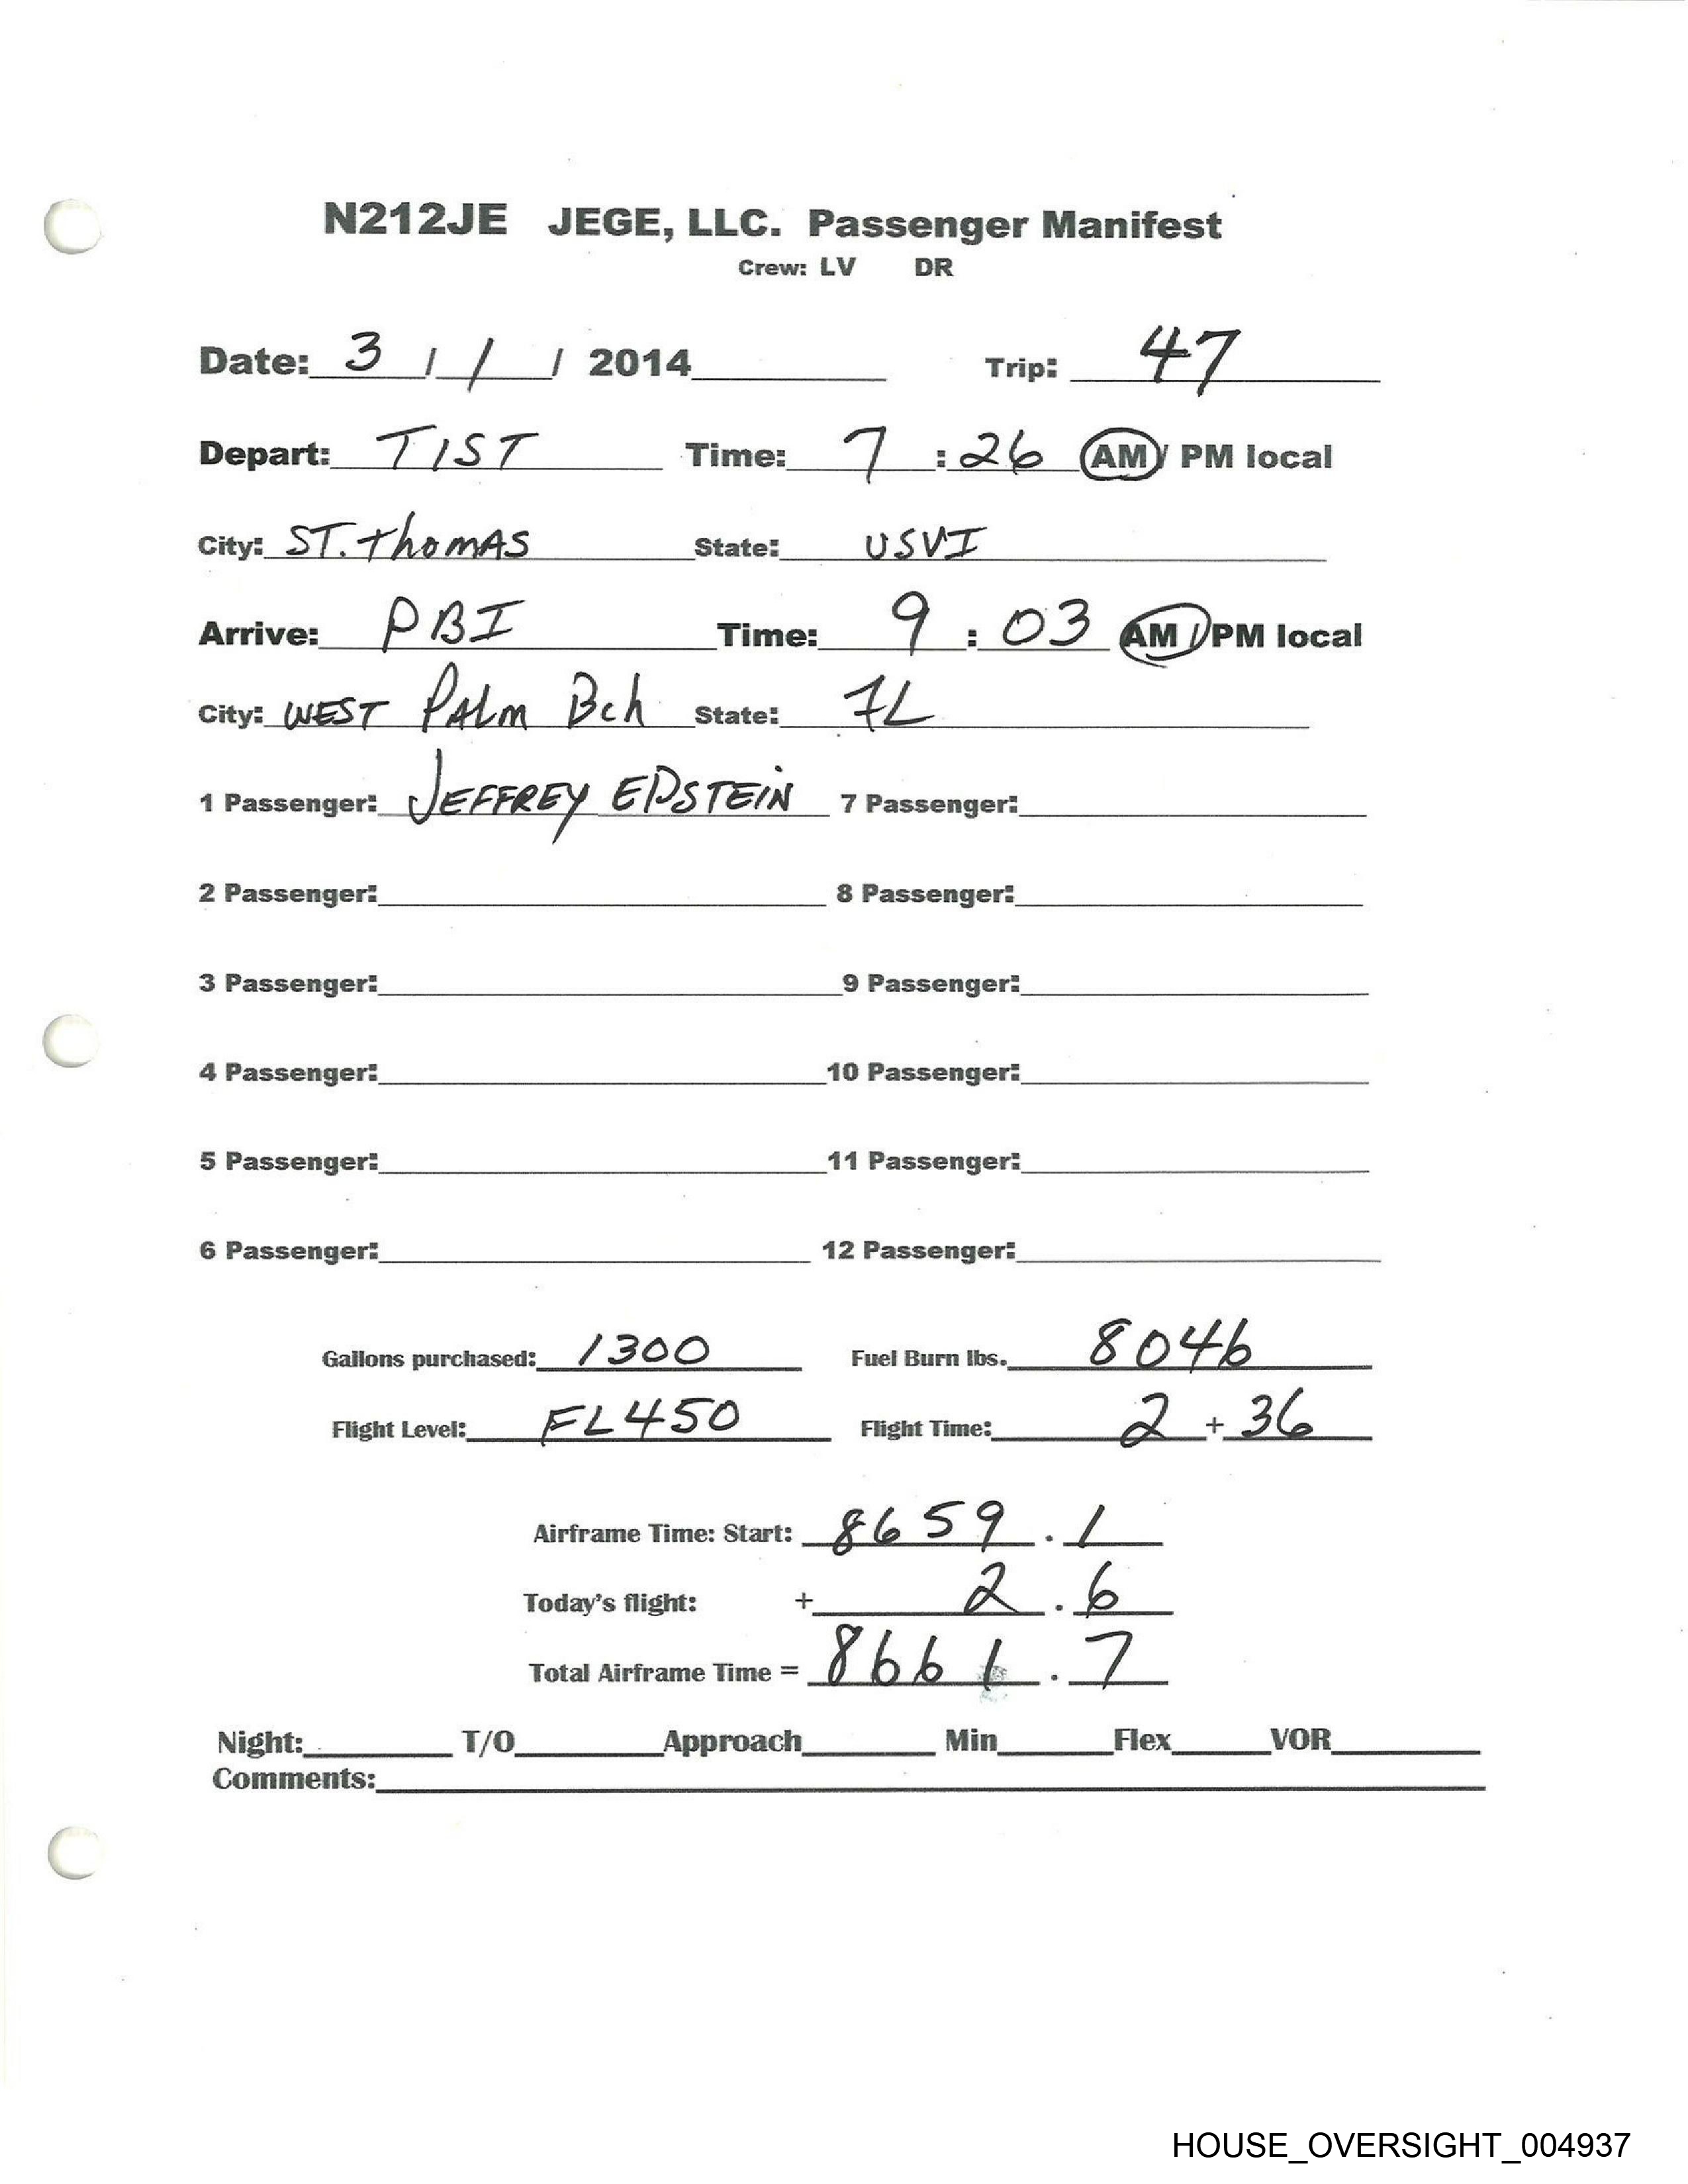 N212JE JEGE, LLC. Passenger Manifest
Crew: LV DR
Date: 3 / 1 / 2014 Trip: 47
Depart: TIST Time: 7 : 26 AM / PM local
City: ST. Thomas State: USVI
Arrive: PBI Time: 9 : 03 AM / PM local
City: WEST PALm Bch State: FL
1 Passenger: JEFFREY EPSTEIN 7 Passenger:
2 Passenger: 8 Passenger:
3 Passenger: 9 Passenger:
4 Passenger: 10 Passenger:
5 Passenger: 11 Passenger:
6 Passenger: 12 Passenger:
Gallons purchased: 1300 Fuel Burn lbs. 8046
Flight Level: FL450 Flight Time: 2 + 36
Airframe Time: Start: 8659 . 1
Today's flight: + 2 . 6
Total Airframe Time = 8661 . 7
Night: T/O Approach Min Flex VOR
Comments:
HOUSE_OVERSIGHT_004937